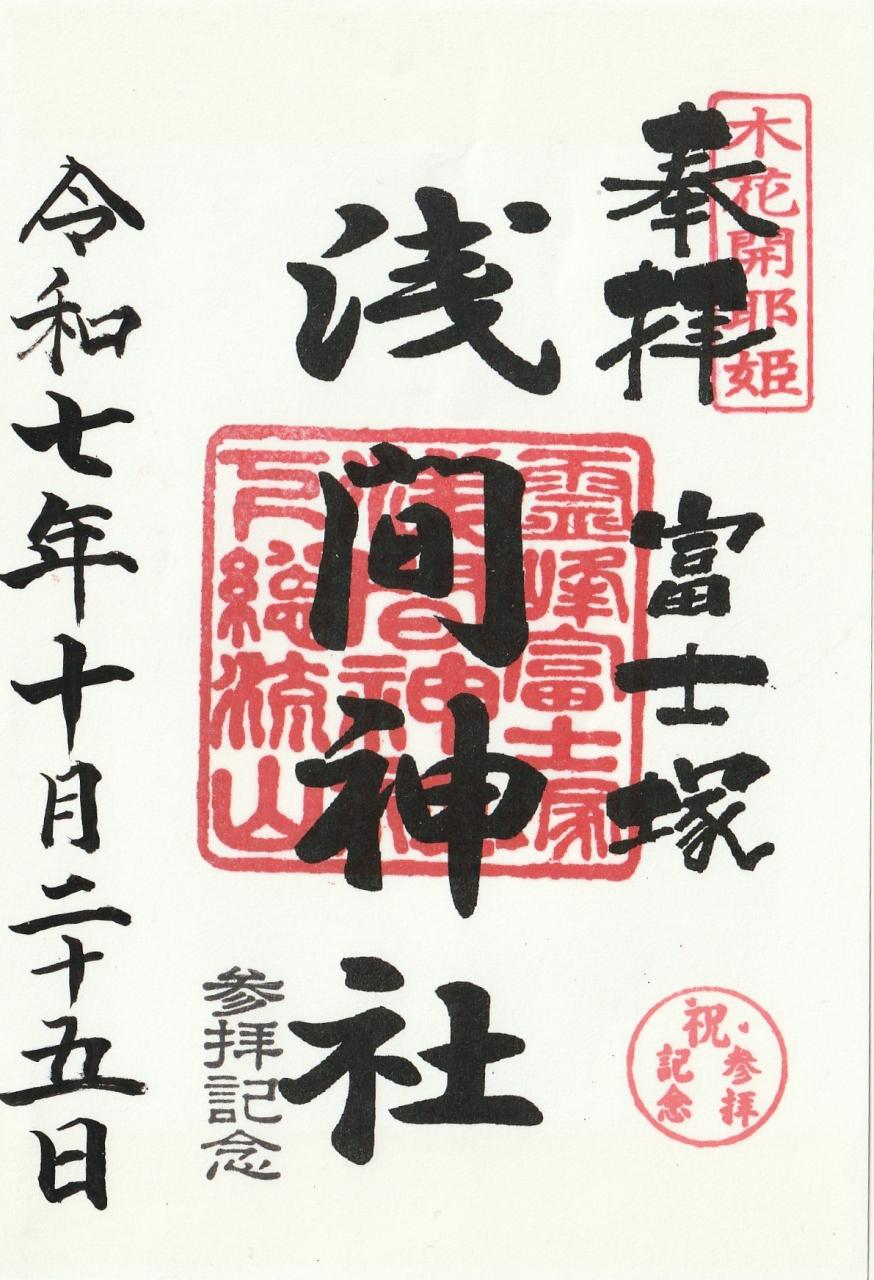 木花開耶姫
奉拝
富士塚
祝
参拝
記念
浅間神社
霊峰富士塚
浅間神社
下總流山
参拝記念
令和七年十月二十五日